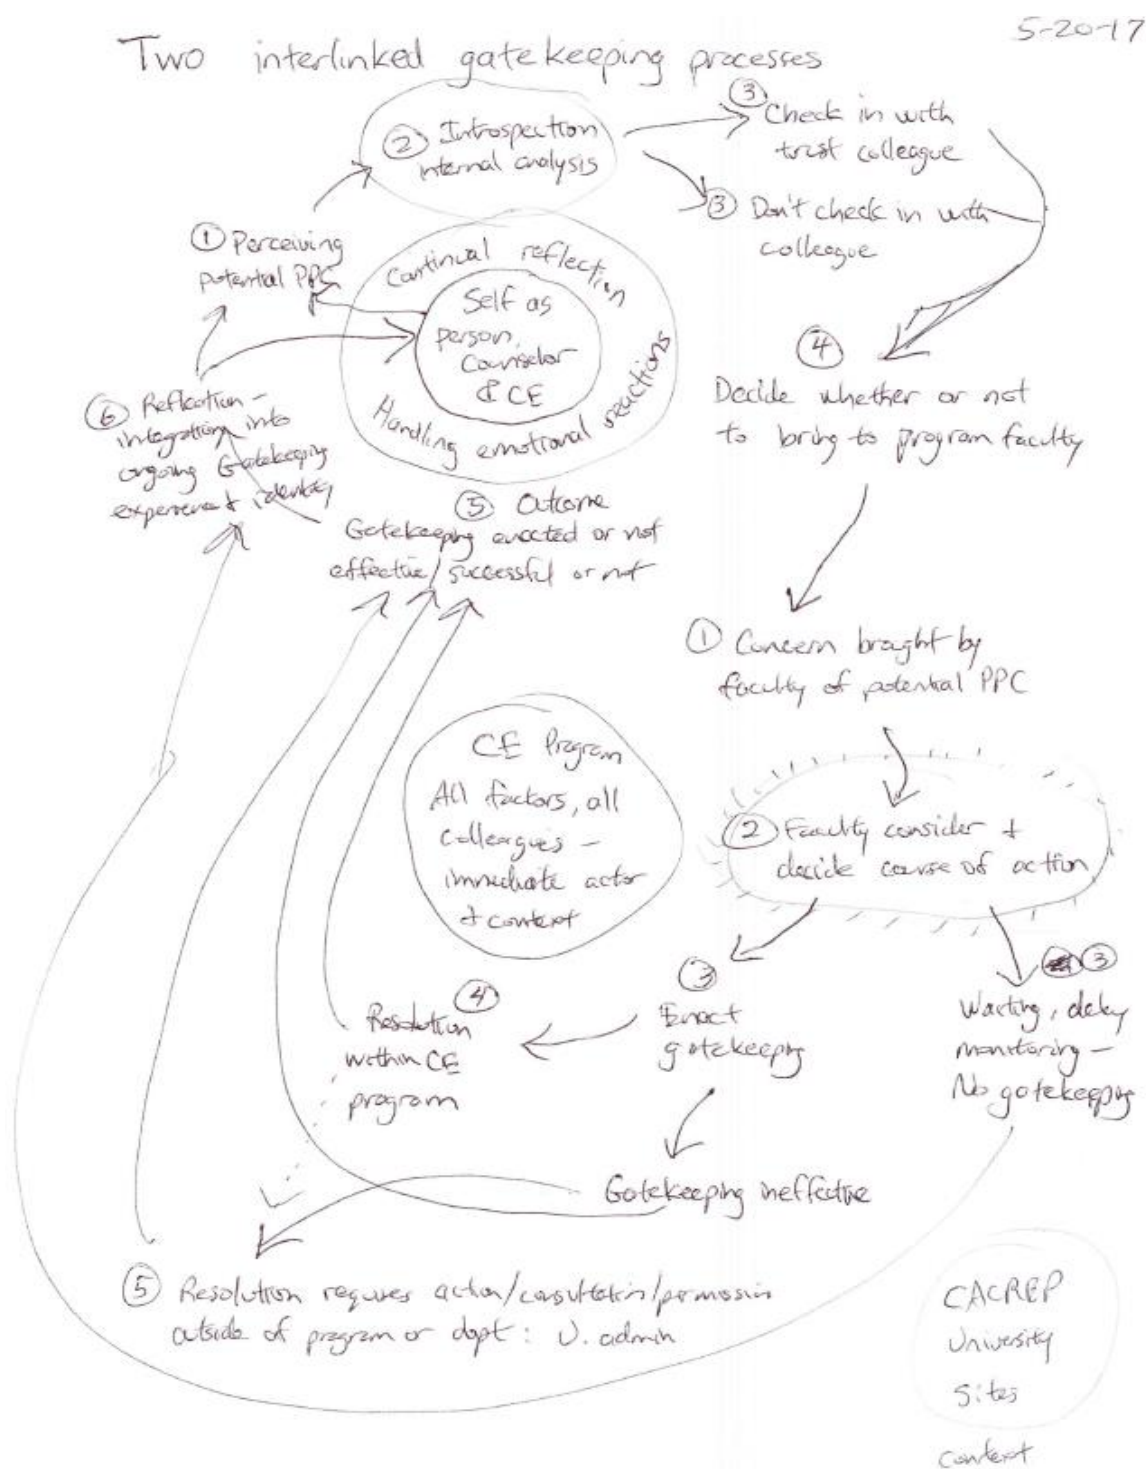 5-20-17
Two interlinked gatekeeping processes
② Introspection
internal analysis
③ Check in with
trust colleague
③ Don't check in with
colleague
① Perceiving
potential PPC
Continual reflection
Self as
person,
Counselor
& CE
Handling emotional reactions
④
Decide whether or not
to bring to program faculty
⑥ Reflection -
integration into
ongoing Gatekeeping
experience + identity
⑤ Outcome
Gatekeeping enacted or not
effective/successful or not
① Concern brought by
faculty of potential PPC
CE Program
All factors, all
colleagues -
immediate actor
+ context
② Faculty consider +
decide course of action
③
Enact
gatekeeping
③
Waiting, delay
monitoring -
No gatekeeping
④
Resolution
within CE
program
Gatekeeping ineffective
⑤ Resolution requires action/consultation/permission
outside of program or dept: U. admin
CACREP
University
Sites
context